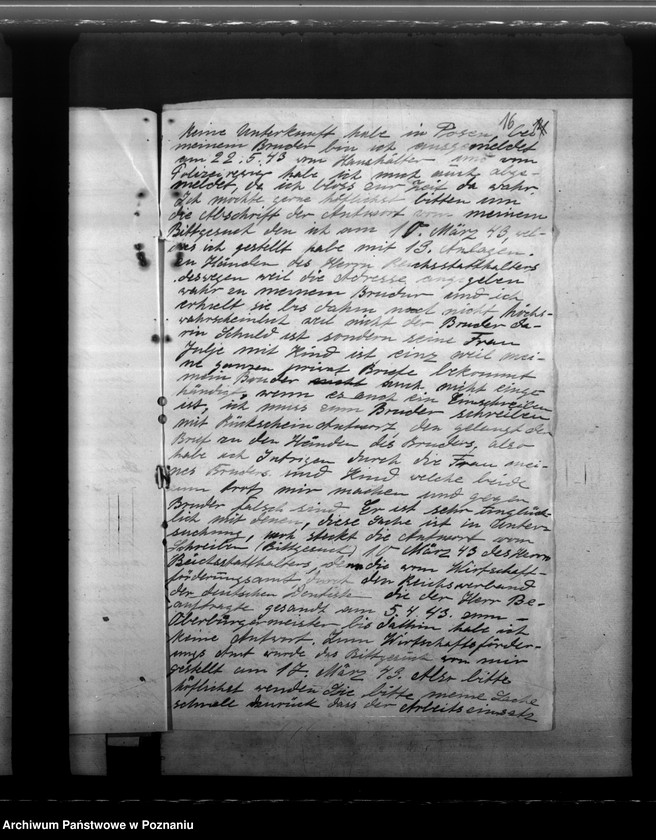 16
keine Unterkunft habe in Posen, bei
meinem Bruder bin ich ausgemeldet
am 22.5.43 vom Haushalter und vom
Polizeirevier habe ich mich auch abge-
meldet, da ich bloss zur Zeit da wahr
Ich möchte gerne höflichst bitten um
die Abschrift der Antwort vom meinem
Bittgesuch den ich am 10. März 43, wel-
ches ich gestellt habe mit 13. Anlagen.
zu Händen des Herrn Reichsstatthalters
deswegen weil die Adresse angegeben
wahr zu meinem Brudur und ich
erhielt sie bis dahin noch nicht höchs-
wahrscheinlich weil nicht der Bruder da-
rin Schuld ist sondern seine Frau
Julje mit Kind ist einz weil mei-
ne ganzen privat Briefe bekommt
mein Bruder auch nicht einge-
händigt, wenn es auch ein Einschreiben
ist, ich muss zum Bruder schreiben
mit Rückschein Antwort, den gelangt der
Brief zu den Händen des Bruders, also
habe ich Intrigen durch die Frau mei-
nes Bruders und Kind welche beide
zum mir machen und gegen
Bruder falsch sind. Er ist sehr unglück-
lich mit denen, diese Sache ist in Unter-
suchung, wo steckt die Antwort vom
Schreiben (Bittgesuch) 10 März 43 des Herrn
Reichsstatthalters, denn die vom Wirtschaft-
förderungsamt durch den Reichsverband
der deutschen Dentiste die der Herr Be-
auftragte gesandt am 5.4.43. zum -
Oberbürgermeister bis dathin habe ich
keine Antwort. Zum Wirtschaftsförder-
ungs Amt wurde das Bittgesuch von mir
gestellt am 17. März 43. Also bitte
höflichst wenden Sie bitte meine Sache
schnell zurück dass der Arbeitseinsatz
Archiwum Państwowe w Poznaniu